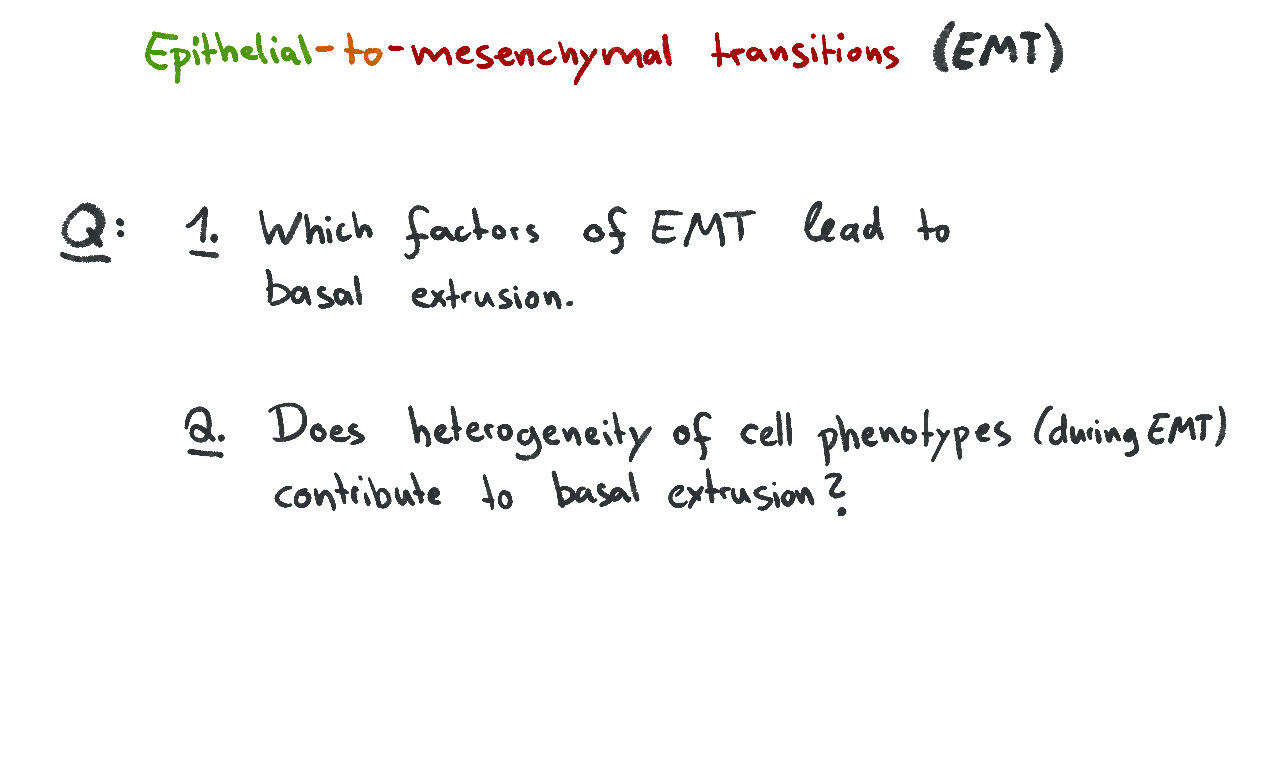 Epithelial-to-mesenchymal transitions (EMT)
Q: 1. Which factors of EMT lead to
basal extrusion.
2. Does heterogeneity of cell phenotypes (during EMT)
contribute to basal extrusion?